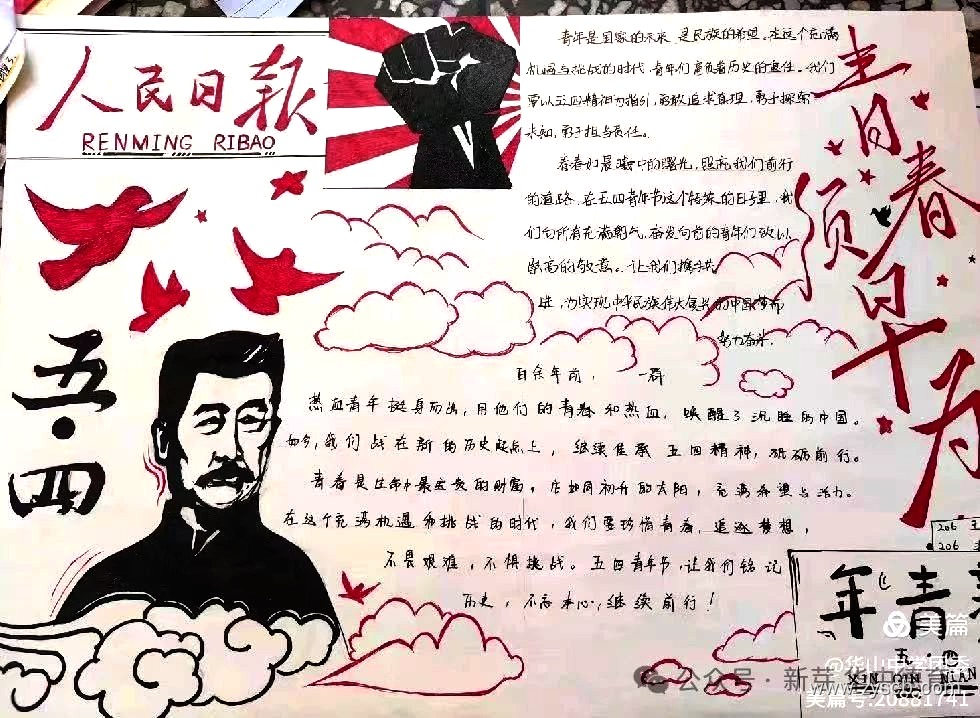 人民日報
RENMING RIBAO
青年是国家的未来 是民族的希望。在这个充满
机遇与挑战的时代 青年们肩负着历史的重任。我们
要以五四精神为指引,勇敢追求真理,勇于探索
未知,勇于担当责任。
青春如晨曦中的曙光,照亮我们前行
的道路。在五四青年节这个特殊的日子里,我
们向所有充满朝气,奋发向前的青年们致以
崇高的敬意。让我们携手共
进,为实现中华民族伟大复兴的中国梦而
努力奋斗.
青春须早为
五·四
百余年前, 一群
热血青年挺身而出,用他们的青春和热血,唤醒了沉睡的中国。
如今,我们站在新的历史起点上, 继续传承 五四精神,砥砺前行。
青春是生命中最宝贵的财富,它如同初升的太阳,充满希望与活力。
在这个充满机遇和挑战的时代,我们要珍惜青春,追逐梦想,
不畏艰难,不惧挑战。五四青年节,让我们铭记
历史,不忘本心,继续前行!
206
206
年青
五·四
QIN NIAN
美篇
@华山中学团委
公众号·新芽
www.zyscb.com
美篇号:20881741